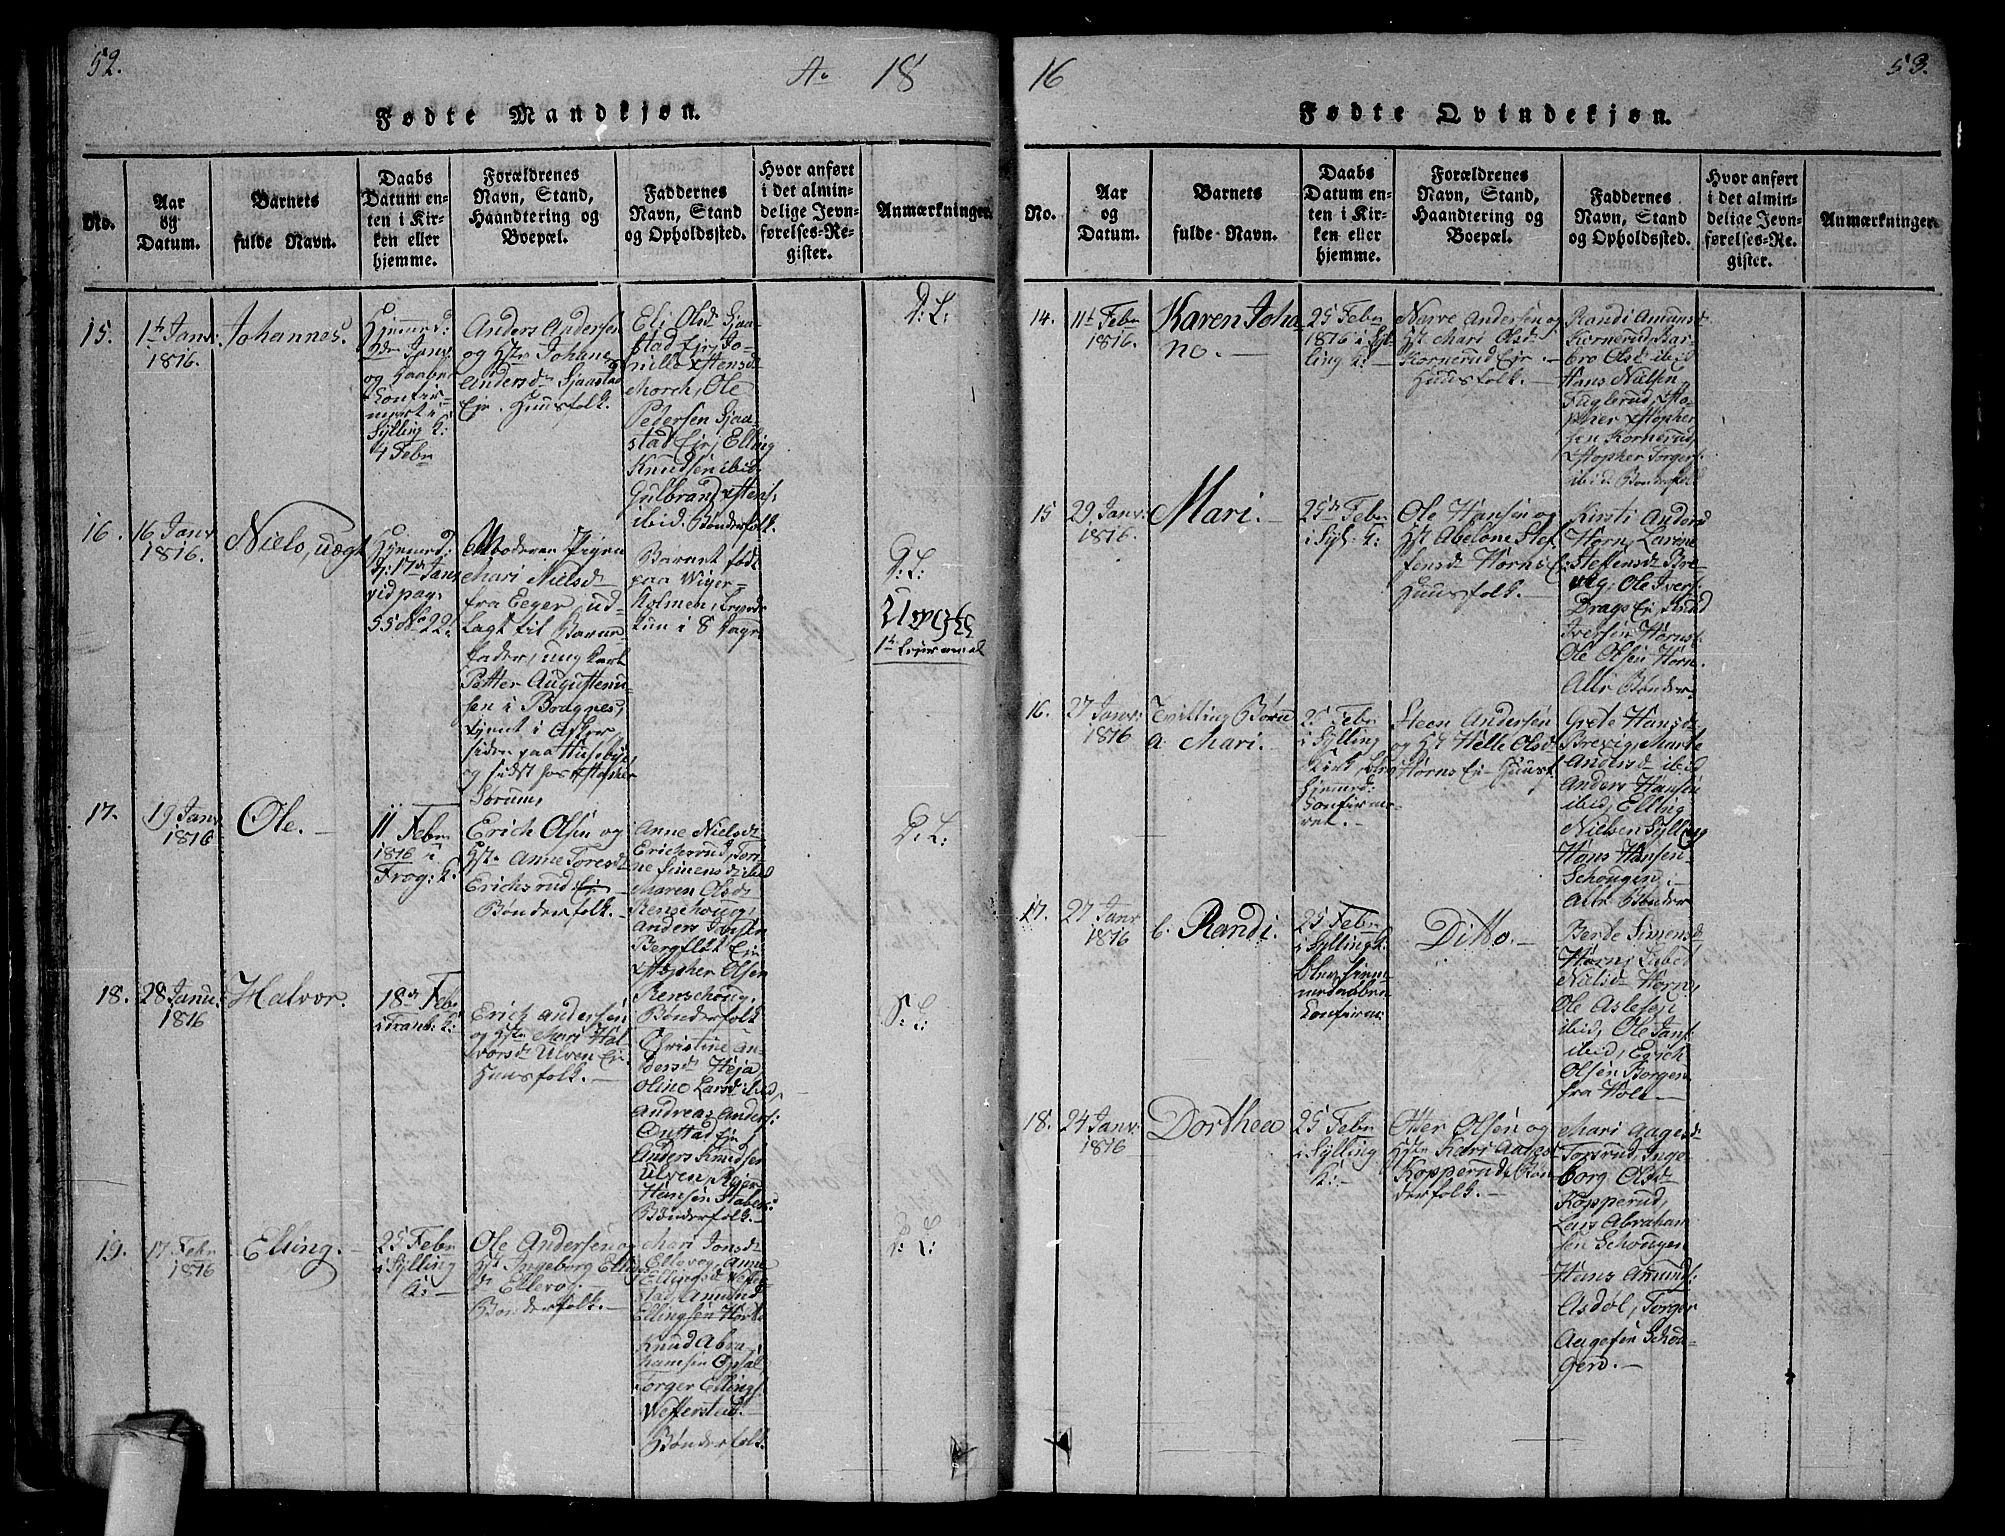 52.
Ao 18
Fødte Mandkjøn.
No.
Aar
og
Datum.
Barnets
fulde Navn.
Daabs
Datum en-
ten i Kir-
ken eller
hjemme.
Forældrenes
Navn, Stand,
Haandtering og
Boepæl.
Faddernes
Navn, Stand
og Opholdssted.
Hvor anført
i det almin-
delige Jevn-
førelses-Re-
gister.
Anmærkninger.
15.
1te Janv:
1816.
Johannes.
Hjemmed:
og Daaben
Confir-
meret i
Sylling K:
4 Febr
Anders Andersen
og Hstr Johane
Andersdr Sjaastad
Eje. Huusfolk.
Eli Olsdr Sjaa-
stad Eje, Jo-
Morch, Ole
Pedersen Sjaa-
stad Eje, Elling
Knudsen ibid,
Gulbrand Xstens:
ibid. Bønderfolk.
D: L:
16.
16 Janv
1816.
Niels, uægt
Hjemmed:
d: 17de Janv
vid pag:
55 No 22.
Moderen Pigen
Mari Nielsdr
fra Eeger, ud-
lagt til Barne-
fader, ung karl
Petter Augustinu-
sen i Bragnes,
tjent i Asker,
siden paa Huseby,
og sidst hos Xstopher
Sørum,
Barnet født
paa Wiger-
holmen,
D: L:
Uægte
1te Leiermaal
17.
19 Janv
1816
Ole.
11 Febr
1816 i
Frog: K:
Erich Olsen og
Hstr Anne Toresdr
Erichsrud Eje
Bønderfolk.
Anne Nielsdr
Erichsrud, Tori-
ne Simensdr ibid
Maren Olsdr
Renschoug,
Anders Jansen
Bergflødt Eje
Xstopher Olsen
Renschoug.
Bønderfolk
D: L:
18.
28 Janu.
1816
Halvor.
18de Feb:
i Tranb: K:
Erich Andersen
og Hstr Mari Hal-
vorsdr Ulven Eje
Huusfolk.
Christine An-
dersdr Heja,
Oline Larsdr ibid
Andreas Anders:
Onstad Eje
Anders Knudsen
Ulven, Reier
Hansen Stabek:
Bønderfolk.
S: L:
19.
17 Febr
1816
Elling.
25 Febr
i Sylling
K:
Ole Andersen og
Hst Ingeborg Ellings
dr Ellevog
Bønderfolk.
Mari Jonsdr
Ellevog, Anne
Ellingsdr Weffer-
stad, Amund
Ellingsen Horte
Knud Abra-
hamsen Opsal
Torger Ellings:
Wefferstad.
Bønderfolk.
D: L:
16
53.
Fødte Qvindekjøn.
No.
Aar
og
Datum.
Barnets
fulde Navn.
Daabs
Datum en-
ten i Kir-
ken eller
hjemme.
Forældrenes
Navn, Stand,
Haandtering og
Boepæl.
Faddernes
Navn, Stand
og Opholdssted.
Hvor anført
i det almin-
delige Jevn-
førelses-Re-
gister.
Anmærkninger.
14.
11te Febr
1816.
Karen Joha
ne.
25 Febr
1816 i Syl-
ling K:
Narve Andersen og
Hst Mari Olsdr
Kornerud Eje.
Huusfolk.
Randi Amundsdr
Kornerud, Bar-
bro Olsdr ibid
Hans Nielsen
Fuglerud, Xsto-
pher Xstopher
sen Kornerud,
Xstopher Torgers:
ibid. Bønderfolk
15
29. Janv:
1816.
Mari.
25de Febr
i Syl: K:
Ole Hansen og
Hst Abelone Stef-
fensdr Horn Eje
Huusfolk.
Kirsti Andersd
Horn, Larine
Steffensdr Bre-
vig: Ole Ivers:
Drags Eje, Knud
Iversen Horns:
Ole Olsen Horn.
Alle Bønder
16.
27 Janv:
1816
Tvilling Børn
a. Mari.
25 Febr
i Sylling
Kirk, blev
hjemmed:
Confirme-
ret.
Steen Andersen
og Hst Helle Olsdr
Horns Eje Huusf.
Grete Hansdr
Brevig, Marte
Andersdr ibid
Anders Hansen
ibid, Elling
Nielsen Sylling
Hans Hansen
Schougen.
Alle Bønder
17.
27 Janv
1816
b. Randi.
25 Febr
i Sylling K.
Ditto.
Berte Simensdr
Horn, Lisbed
Nielsdr Horn,
Ole Aslesen
ibid, Ole Jans:
ibid, Erich
Olsen Borgen
fra Hole
18.
24 Janv:
1816
Dorthea
25 Febr
i Sylling
K:
Otter Olsen og
Hstr Kari Aagesdr
Kopperud, Bøn-
derfolk.
Mari Aagesdr
Tofsrud, Inge-
borg Olsdr
Kopperud,
Lars Abraham
sen Schougen
Hans Amunds:
Asdøl, Torger
Aagesen Schou-
gen.